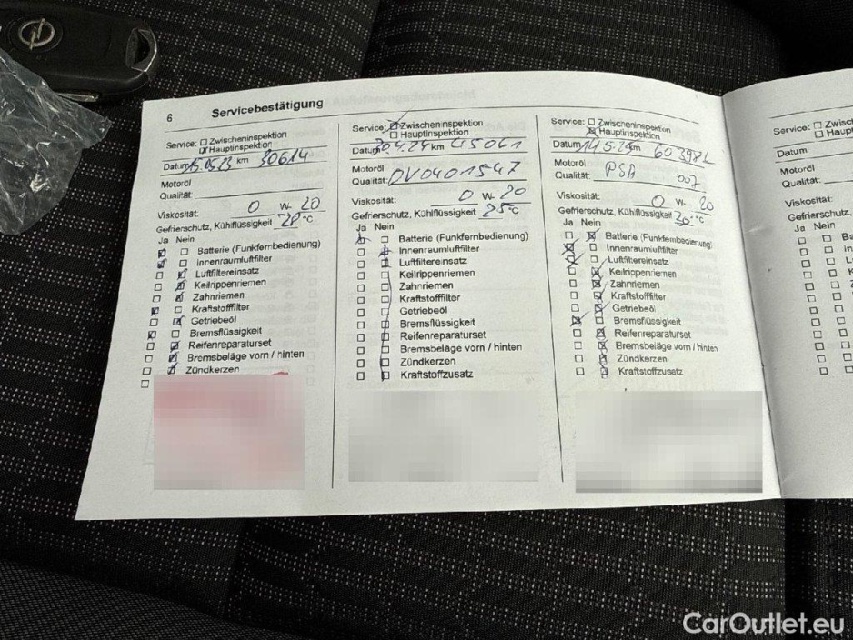 6 Servicebestätigung
Service: Zwischeninspektion
Hauptinspektion
Datum 15.05.23 km 30614
Motoröl
Qualität:
Viskosität: 0 W- 20
Gefrierschutz, Kühlflüssigkeit 28 °C
Ja Nein
Batterie (Funkfernbedienung)
Innenraumluftfilter
Luftfiltereinsatz
Keilrippenriemen
Zahnriemen
Kraftstofffilter
Getriebeöl
Bremsflüssigkeit
Reifenreparaturset
Bremsbeläge vorn / hinten
Zündkerzen
Service: Zwischeninspektion
Hauptinspektion
Datum 30.4.24 km 45061
Motoröl
Qualität: OV0401547
Viskosität: 0 W- 20
Gefrierschutz, Kühlflüssigkeit 25°C
Ja Nein
Batterie (Funkfernbedienung)
Innenraumluftfilter
Luftfiltereinsatz
Keilrippenriemen
Zahnriemen
Kraftstofffilter
Getriebeöl
Bremsflüssigkeit
Reifenreparaturset
Bremsbeläge vorn / hinten
Zündkerzen
Kraftstoffzusatz
Service: Zwischeninspektion
Hauptinspektion
Datum 14.5.25 km
Motoröl
Qualität: PSA
Viskosität: 0 W- 20
Gefrierschutz, Kühlflüssigkeit 30 °C
Ja Nein
Batterie (Funkfernbedienung)
Innenraumluftfilter
Luftfiltereinsatz
Keilrippenriemen
Zahnriemen
Kraftstofffilter
Getriebeöl
Bremsflüssigkeit
Reifenreparaturset
Bremsbeläge vorn / hinten
Zündkerzen
Kraftstoffzusatz
Service: Zwisch
Haupt
Datum
Motoröl
Qualität:
Viskosität:
Gefrierschutz,
Ja Nein
CarOutlet.eu